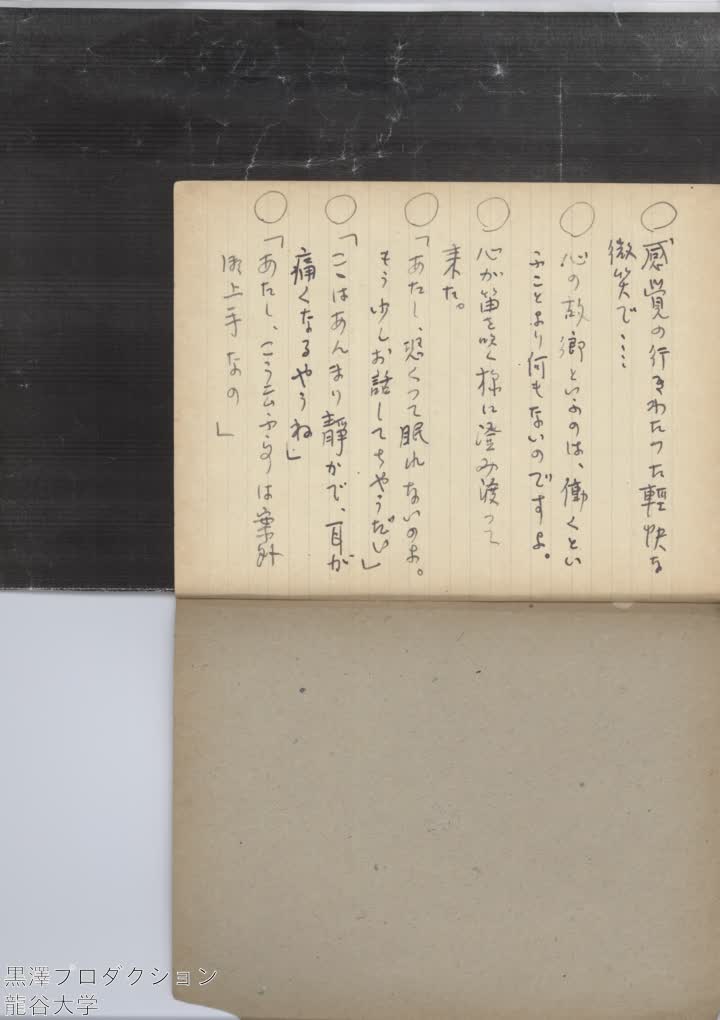 ○感覚の行きわたつた軽快な
微笑で……
○心の故郷といふのは、働くとい
ふことより何もないのですよ。
○心が笛を吹く様に澄み渡って
来た。
○「あたし、恐くつて眠れないのよ。
もう少しお話してちやうだい」
○「ここはあんまり静かで、耳が
痛くなるやうね」
○「あたし、こう云ふ事は案外
上手なの」
黒澤プロダクション
龍谷大学